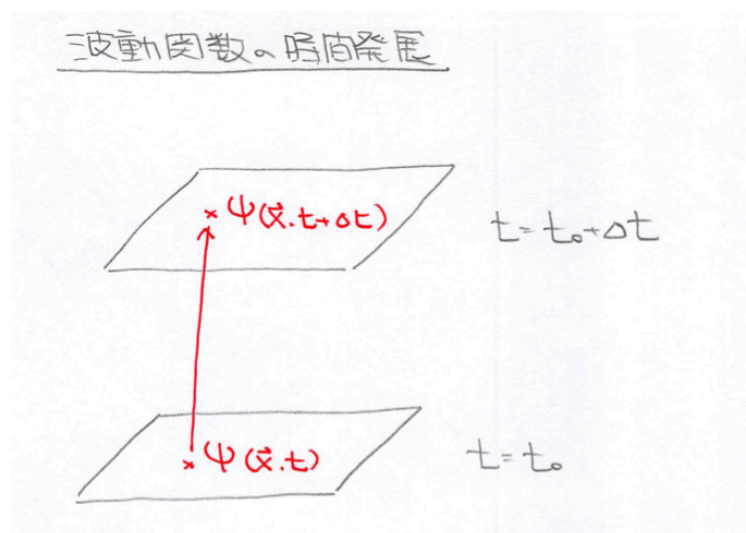 波動関数の時間発展
ψ(x⃗.t+Δt)
t=t₀+Δt
ψ(x⃗.t)
t=t₀